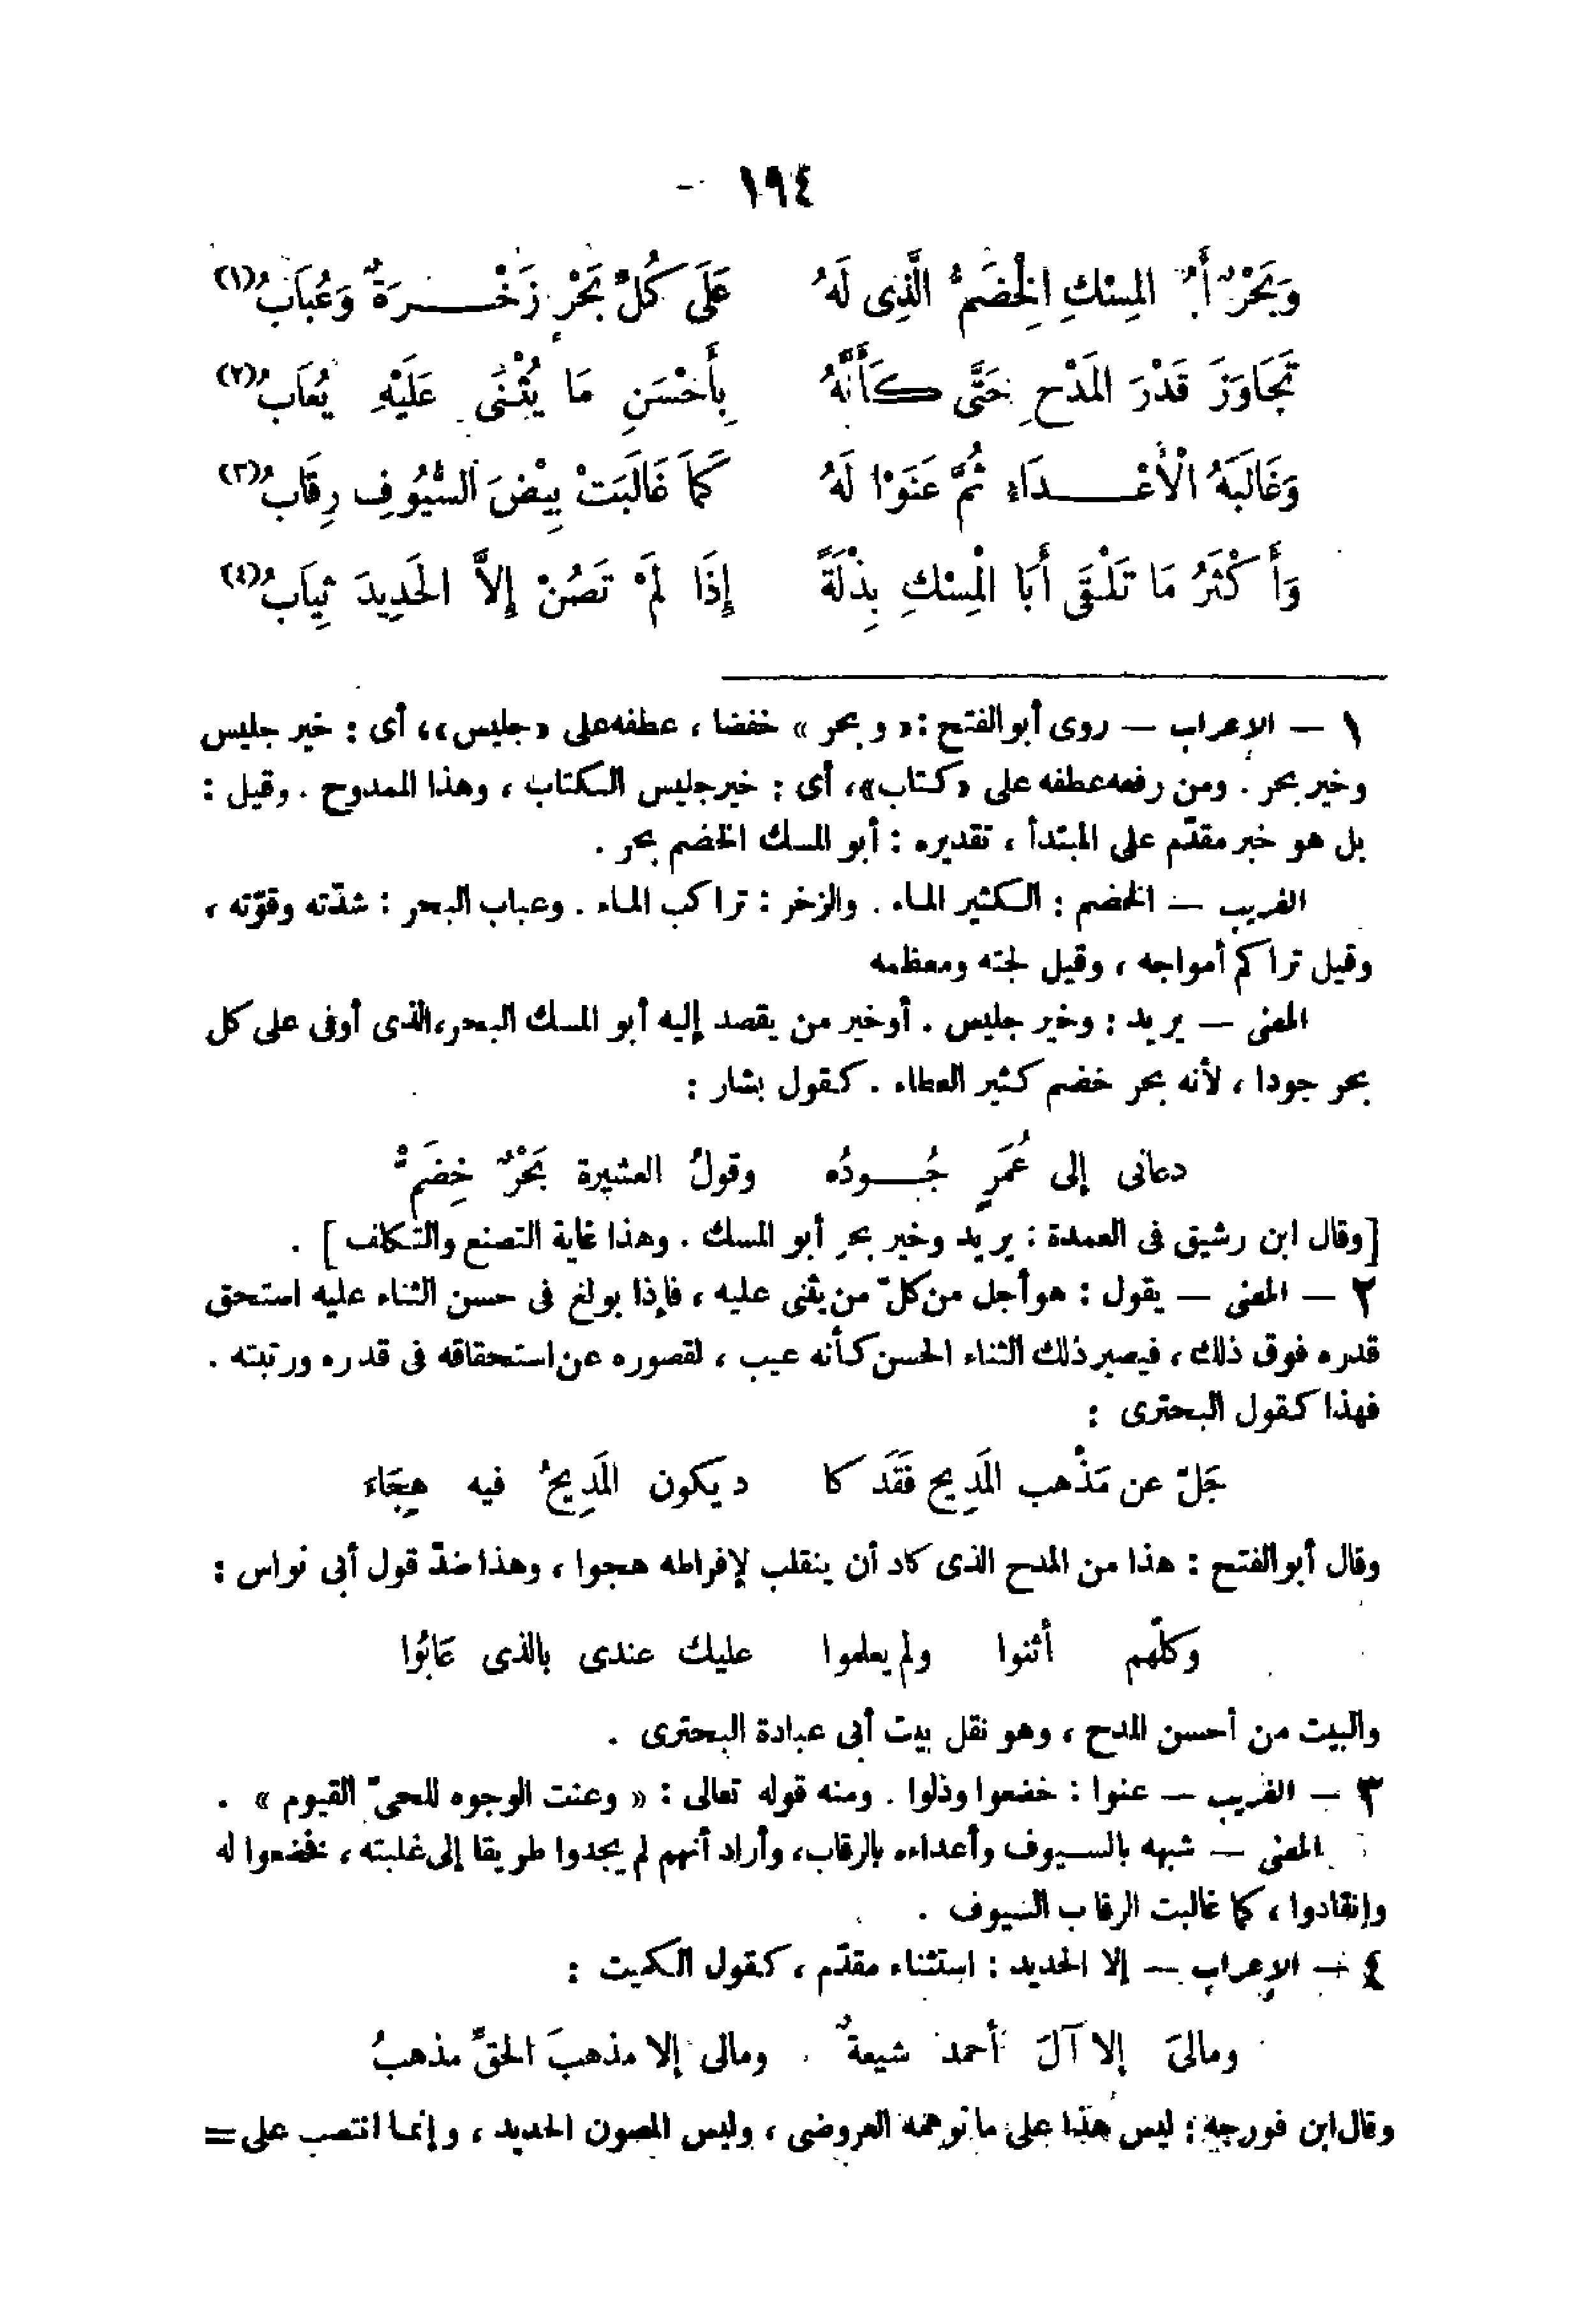 ١٩٤ -
وَبَحْرٌ أَبُ المِسْكِ الْخِضَمُّ الَّذِى لَهُ عَلَى كُلِّ بَحْرٍ زَخْرَةٌ وَعُبَابُ (١)
تَجَاوَزَ قَدْرَ المَدْحِ حَتَّى كَأَنَّهُ بِأَحْسَنِ مَا يُثْنَى عَلَيْهِ يُعَابُ (٢)
وَغَالَبَهُ الْأَعْدَاءِ ثُمَّ عَنَوْا لَهُ كَمَا غَالَبَتْ بِيْضَ السُّيُوفِ رِقَابُ (٣)
وَأَكْثَرُ مَا تَلْقَى أَبَا الْمِسْكِ بِذْلَةً إِذَا لَمْ تَصُنْ إِلاَّ الحَدِيدَ ثِيَابُ (٤)
١ — الإعراب — روى أبو الفتح : « وبحر » خفضا ، عطفه على «جليس» ، أى : خير جليس
وخير بحر . ومن رفعه عطفه على «كتاب» ، أى : خير جليس الكتاب ، وهذا الممدوح . وقيل :
بل هو خبر مقدّم على المبتدأ ، تقديره : أبو المسك الخضم بحر .
الغريب — الخضم : الكثير الماء . والزخر : تراكب الماء . وعباب البحر : شدّته وقوّته ،
وقيل تراكم أمواجه ، وقيل لجته ومعظمه
المعنى — يريد : وخير جليس . أوخير من يقصد إليه أبو المسك البحر، الذى أوفى على كل
بحر جودا ، لأنه بحر خضم كثير العطاء . كقول بشار :
دعانى إلى عُمَرٍ جُودُه وقولُ العشيرة بَحْرٌ خِضَمّْ
[وقال ابن رشيق فى العمدة : يريد وخير بحر أبو المسك . وهذا غاية التصنع والتكلف ] .
٢ — المعنى — يقول : هو أجل من كلّ من يثنى عليه ، فإذا بولغ فى حسن الثناء عليه استحق
قدره فوق ذلك ، فيصير ذلك الثناء الحسن كأنه عيب ، لقصوره عن استحقاقه فى قدره ورتبته .
فهذا كقول البحترى :
جَلّ عن مَذْهب المَدِيح فَقَد كا د يكون المَدِيحُ فيه هِجَاءَ
وقال أبو الفتح : هذا من المدح الذى كاد أن ينقلب لإفراطه هجوا ، وهذا ضدّ قول أبى نواس :
وكلّهم أثنوا ولم يعلموا عليك عندى بالذى عَابُوا
والبيت من أحسن المدح ، وهو نقل بيت أبى عبادة البحترى .
٣ — الغريب — عنوا : خضعوا وذلوا . ومنه قوله تعالى : « وعنت الوجوه للحىّ القيوم » .
المعنى — شبهه بالسيوف وأعداءه بالرقاب، وأراد أنهم لم يجدوا طريقا إلى غلبته ، فخضعوا له
وانقادوا ، كما غالبت الرقاب السيوف .
٤ — الإعراب — إلا الحديد : استثناء مقدّم ، كقول الكميت :
ومالىَ إلا آلَ أحمد شيعةٌ ومالى إلا مذهبَ الحقِّ مذهبُ
وقال ابن فورجه : ليس هذا على ما توهمه العروضى ، وليس المصون الحديد ، وإنما انتصب على =